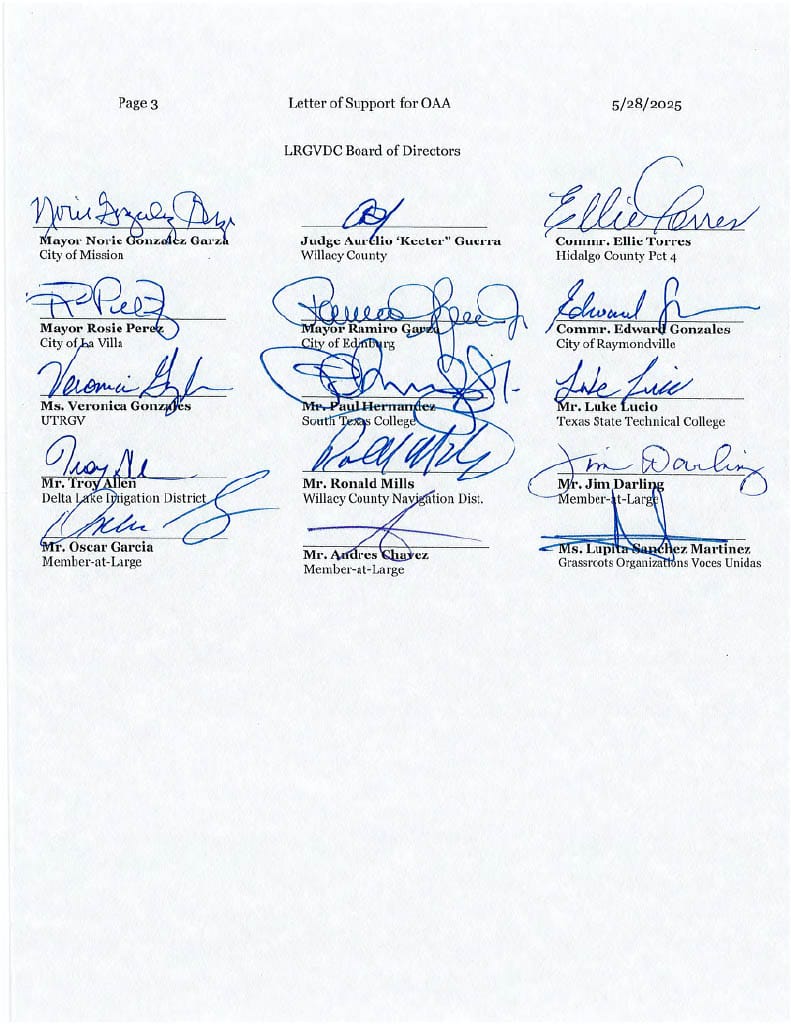 Page 3 Letter of Support for OAA 5/28/2025
LRGVDC Board of Directors
Norie Gonzalez Garza
Ellie Torres
Mayor Norie Gonzalez Garza Judge Aurelio “Keeter” Guerra Commr. Ellie Torres
City of Mission Willacy County Hidalgo County Pct 4
R Perez
Edward
Mayor Rosie Perez Mayor Ramiro Garza Commr. Edward Gonzales
City of La Villa City of Edinburg City of Raymondville
Veronica
Luke Lucio
Ms. Veronica Gonzales Mr. Paul Hernandez Mr. Luke Lucio
UTRGV South Texas College Texas State Technical College
Troy
Jim Darling
Mr. Troy Allen Mr. Ronald Mills Mr. Jim Darling
Delta Lake Irrigation District Willacy County Navigation Dist. Member-at-Large
Mr. Oscar Garcia Mr. Andres Chavez Ms. Lupita Sanchez Martinez
Member-at-Large Member-at-Large Grassroots Organizations Voces Unidas